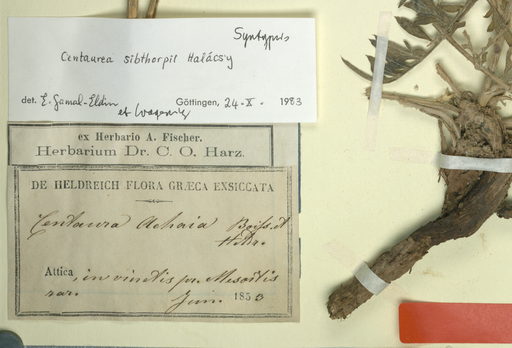 Syntypus
Centaurea sibthorpii Halácsy
det. E. Gamal-Eldin Göttingen, 24-X. 1983
et Wagenitz
ex Herbario A. Fischer.
Herbarium Dr. C. O. Harz.
DE HELDREICH FLORA GRÆCA EXSICCATA
Centaurea Achaia Boiss. et
Heldr.
Attica, in vinetis pr.
rar. Jun. 185